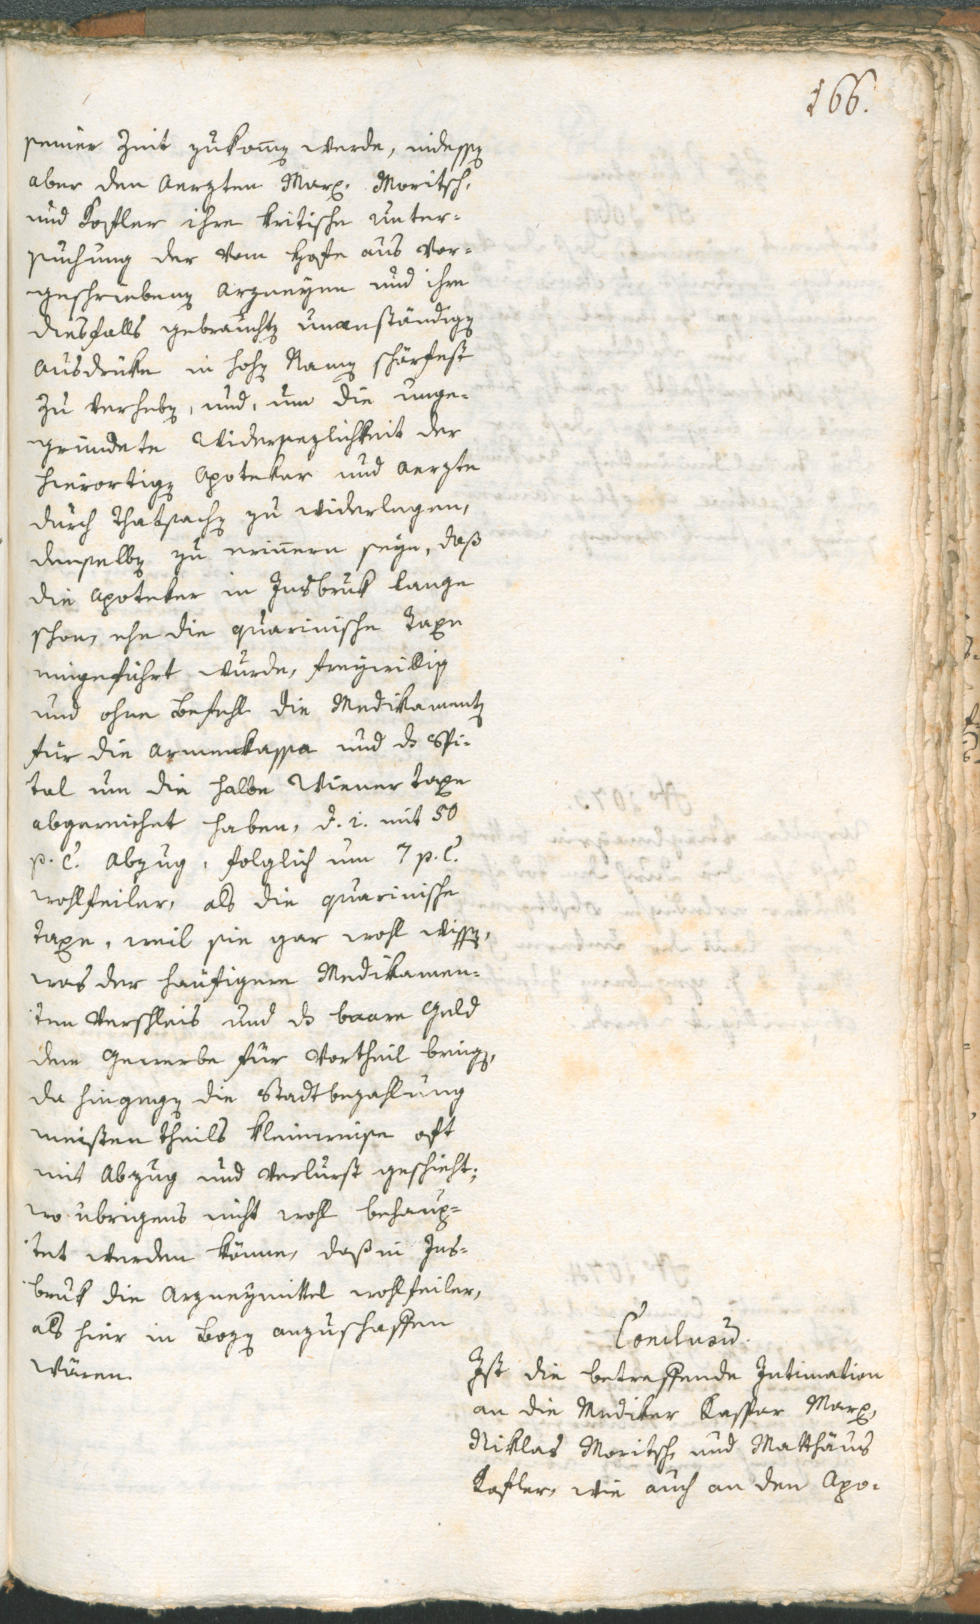 166.
seiner Zeit zukom̄en werde, indessen
aber den Aerzten Marx, Moritsch,
und Kofler ihre kritische Unter-
suchung der vom Hofe aus vor-
geschriebenen Arzneyen und ihre
diesfalls gebrauchten unanständigen
Ausdrüke in hohen Namen schärfest
zu verheben, und, um die unge-
gründete Widersezlichkeit der
hierortigen Apoteker und Aerzte
durch Thatsachen zu widerlegen,
denselben zu erinnern seye, daß
die Apoteker in Insbruk lange
schon, ehe die quarinische Taxe
eingeführt wurde, freywillig
und ohne Befehl die Medikamenten
für die Armenkassa und das Spi-
tal um die halbe Wiener Taxe
abgereichet haben, d. i. mit 50
p. C. Abzug, folglich um 7 p. C.
wohlfeiler, als die quarinische
Taxe, weil sie gar wohl wissen,
was der häufigere Medikamen-
ten Verschleis und das baare Geld
dem Gewerbe für Vortheil bringen,
da hingegen die Stadtbezahlung
meisten theils kleinweise oft
mit Abzug und Verlurst geschieht;
wo übrigens nicht wohl behaup-
tet werden könne, daß in Ins-
bruk die Arzneymittel wohlfeiler,
als hier in Bozen anzuschaffen
wären.
Conclusum.
Ist die betreffende Intimation
an die Mediker Kaspar Marx,
Niklas Moritsch, und Matthäus
Kofler, wie auch an den Apo-